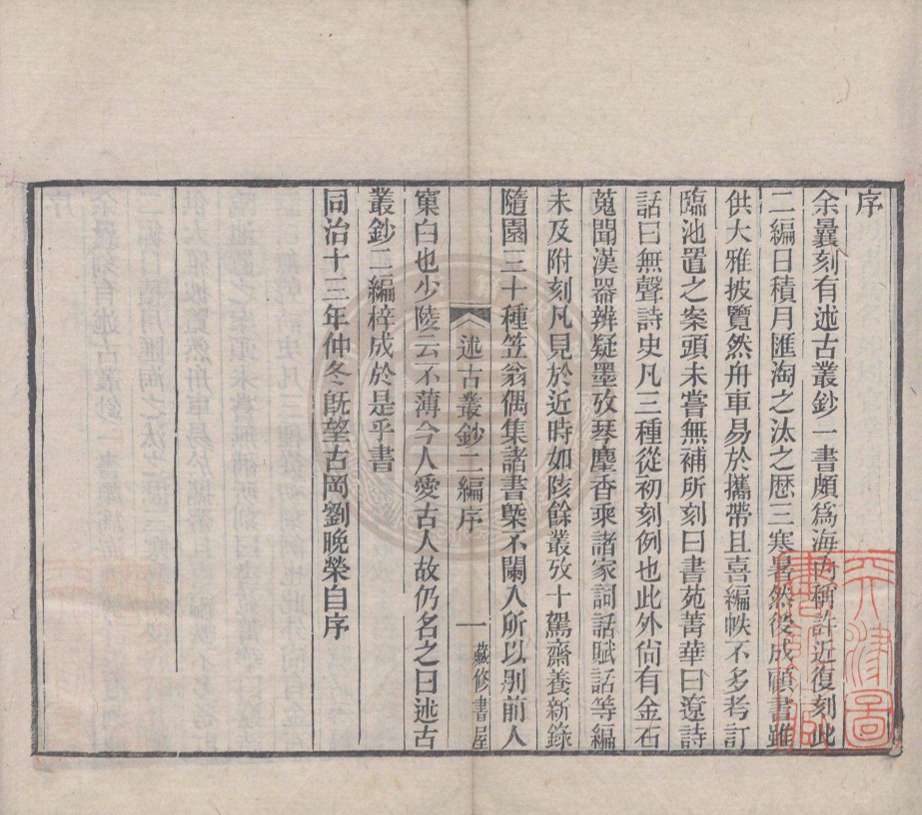 序
余曩刻有述古叢鈔一書頗爲海內稱許近復刻此
二編日積月匯淘之汰之歷三寒暑然後成顧書雖
供大雅披覽然舟車易於攜帶且喜編帙不多考訂
臨池置之案頭未嘗無補所刻曰書苑菁華曰遼詩
話曰無聲詩史凡三種從初刻例也此外尙有金石
蒐聞漢器辨疑墨攷琴麈香乘諸家詞話賦話等編
未及附刻凡見於近時如陔餘叢攷十駕齋養新錄
隨園三十種笠翁偶集諸書槩不闌入所以別前人
述古叢鈔二編序 一 藏修書屋
窠白也少陵云不薄今人愛古人故仍名之曰述古
叢鈔二編梓成於是乎書
同治十三年仲冬旣望古岡劉晚榮自序
天津圖
書館